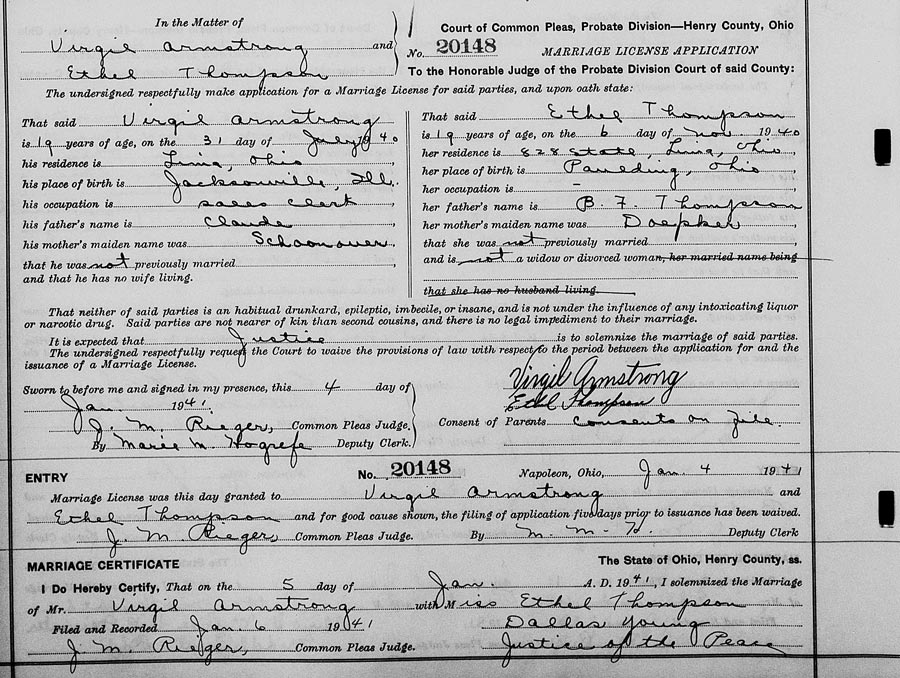 In the Matter of
Virgil Armstrong and
Ethel Thompson
Court of Common Pleas, Probate Division—Henry County, Ohio
No. 20148 MARRIAGE LICENSE APPLICATION
To the Honorable Judge of the Probate Division Court of said County:
The undersigned respectfully make application for a Marriage License for said parties, and upon oath state:
That said Virgil Armstrong
is 19 years of age, on the 31 day of July 1940
his residence is Lima, Ohio,
his place of birth is Jacksonville, Ill.,
his occupation is sales clerk,
his father's name is Claude,
his mother's maiden name was Schoonover,
that he was not previously married,
and that he has no wife living.
That said Ethel Thompson
is 19 years of age, on the 6 day of Nov. 1940
her residence is 828 State, Lima, Ohio,
her place of birth is Paulding, Ohio,
her occupation is -,
her father's name is B. F. Thompson
her mother's maiden name was Doepker,
that she was not previously married,
and is not a widow or divorced woman, her married name being
that she has no husband living.
That neither of said parties is an habitual drunkard, epileptic, imbecile, or insane, and is not under the influence of any intoxicating liquor
or narcotic drug. Said parties are not nearer of kin than second cousins, and there is no legal impediment to their marriage.
It is expected that Justice is to solemnize the marriage of said parties.
The undersigned respectfully request the Court to waive the provisions of law with respect to the period between the application for and the
issuance of a Marriage License.
Sworn to before me and signed in my presence, this 4 day of
Jan. 1941.
J. M. Rieger, Common Pleas Judge.
By Marie M. Hogrefe Deputy Clerk.
Virgil Armstrong
Ethel Thompson
Consent of Parents Consents on File.
ENTRY No. 20148 Napoleon, Ohio, Jan. 4 1941
Marriage License was this day granted to Virgil Armstrong and
Ethel Thompson and for good cause shown, the filing of application five days prior to issuance has been waived.
J. M. Rieger, Common Pleas Judge. By M. M. H. Deputy Clerk
MARRIAGE CERTIFICATE The State of Ohio, Henry County, ss.
I Do Hereby Certify, That on the 5 day of Jan. A. D. 1941, I solemnized the Marriage
of Mr. Virgil Armstrong with Miss Ethel Thompson
Filed and Recorded Jan. 6 1941 Dallas Young
J. M. Rieger, Common Pleas Judge. Justice of the Peace